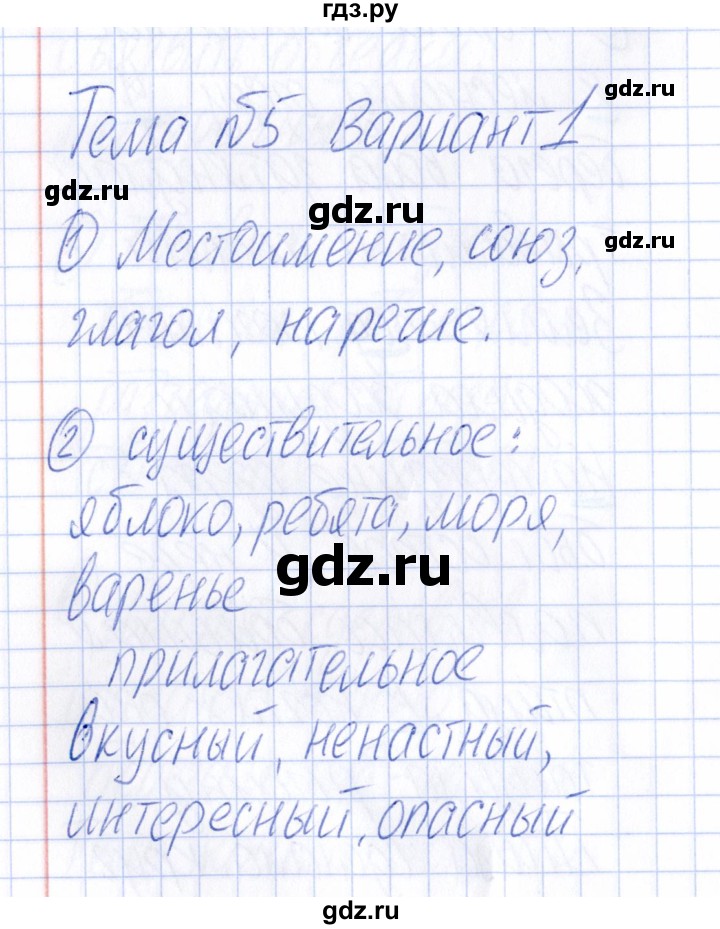 гдз.ру
Тема №5 Вариант 1
gdz.ru
gdz.ru
gdz.ru
① Местоимение, союз,
gdz.ru
глагол, наречие.
② существительное:
яблоко, ребята, моря,
gdz.ru
варенье
прилагательное
вкусный, ненастный,
интересный, опасный
gdz.ru
gdz.ru